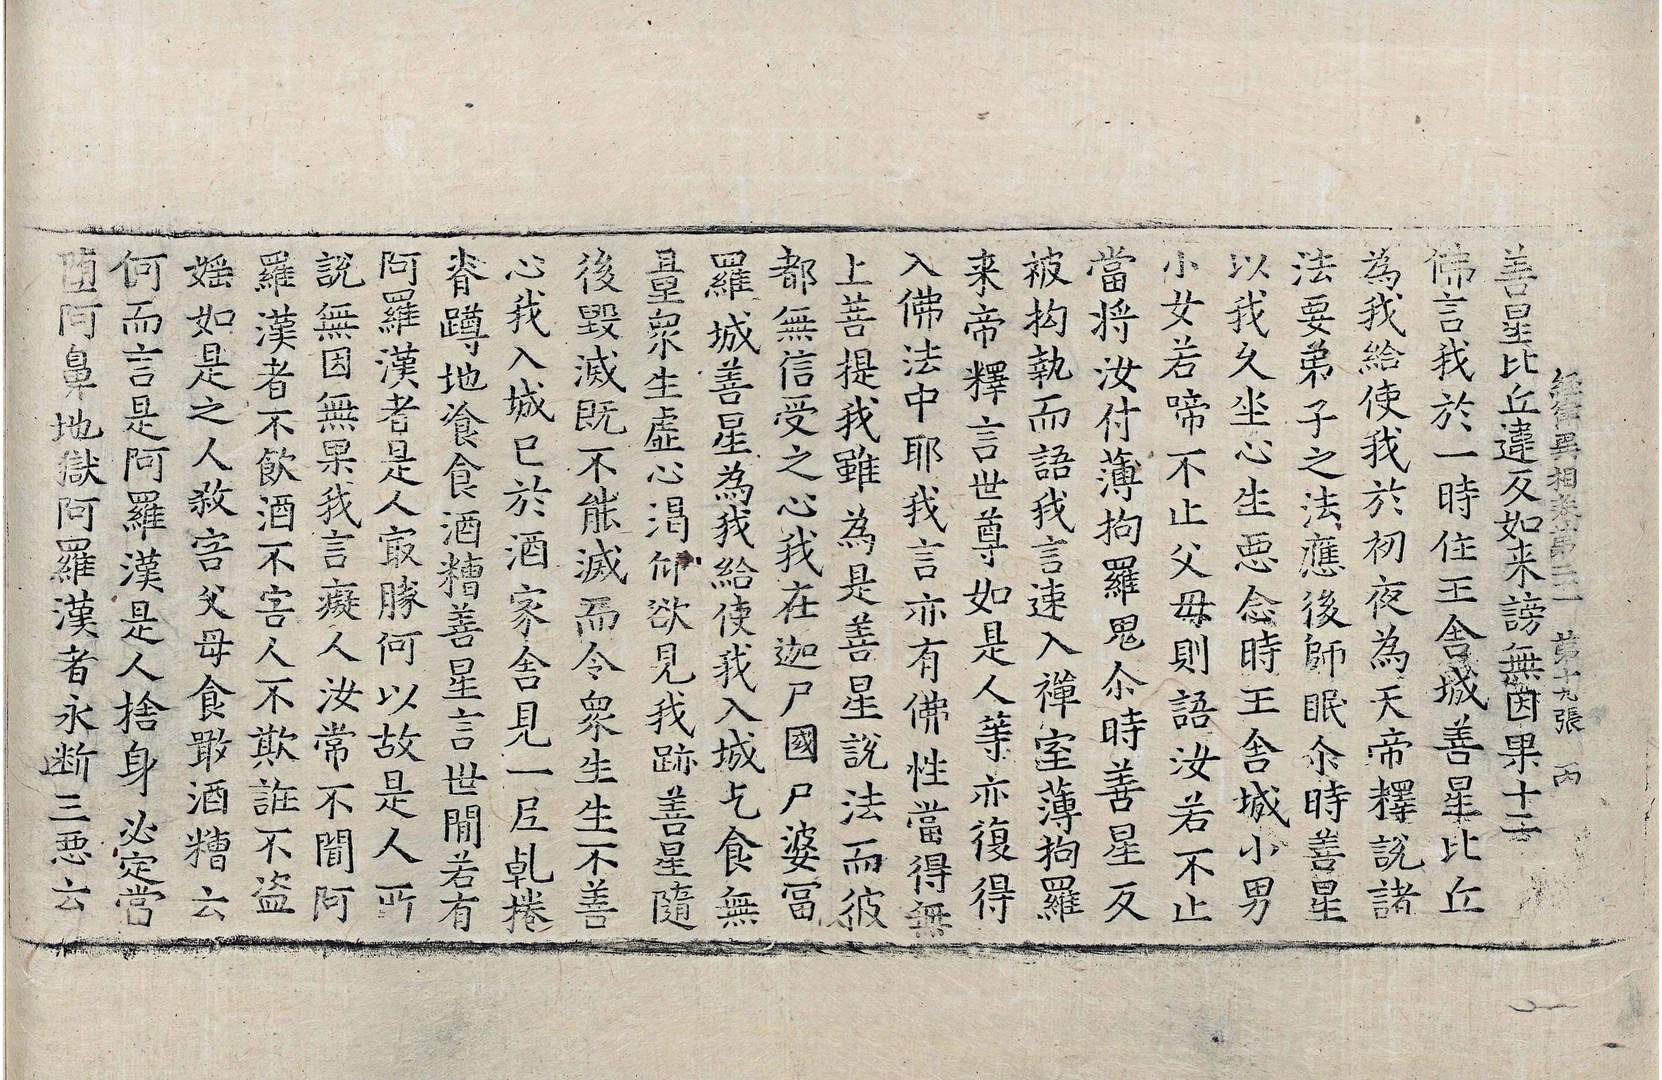 經律異相卷第二一 第十九張 丙
善星比丘違反如来謗無因果十三
佛言我於一時住王舍城善星比丘
為我給使我於初夜為天帝釋說諸
法要弟子之法應後師眠尒時善星
以我久坐心生惡念時王舍城小男
小女若啼不止父毋則語汝若不止
當將汝付薄拘羅鬼尒時善星反
被拘執而語我言速入禪室薄拘羅
来帝釋言世尊如是人等亦復得
入佛法中耶我言亦有佛性當得無
上菩提我雖為是善星說法而彼
都無信受之心我在迦尸國尸婆冨
羅城善星為我給使我入城乞食無
量衆生虛心渴仰欲見我跡善星隨
後毀滅既不能滅而令衆生生不善
心我入城已於酒家舍見一尼乹捲
脊蹲地飡食酒糟善星言世閒若有
阿羅漢者是人㝡勝何以故是人所
說無因無果我言癡人汝常不聞阿
羅漢者不飲酒不害人不欺誑不盜
婬如是之人殺害父母食噉酒糟云
何而言是阿羅漢是人捨身必定當
墮阿鼻地獄阿羅漢者永断三惡云